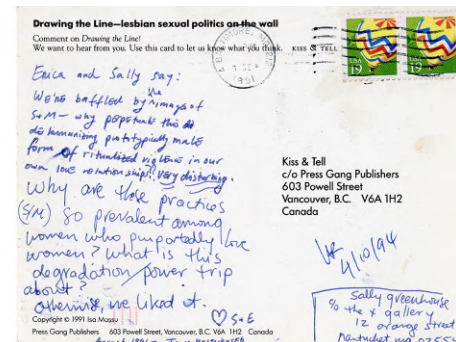 Drawing the Line—lesbian sexual politics on the wall
Comment on Drawing the Line!
We want to hear from you. Use this card to let us know what you think. KISS & TELL
BALTIMORE, M
1991
USA
19
USA
19
Erica and Sally say:
We're baffled by the images of
S+M — why perpetuate this
dehumanizing prototypically male
form of ritualized violence in our
own love relationships? very disturbing.
Why are those practices
(S/M) so prevalent among
women who purportedly love
women? What is this
degradation/power trip
about?
otherwise, we liked it.
♡ S + E
Kiss & Tell
c/o Press Gang Publishers
603 Powell Street
Vancouver, B.C. V6A 1H2
Canada
4/10/94
Sally greenhouse
c/o the x gallery
12 orange street
Nantucket ma 02554
Copyright © 1991 Isa Massu
Press Gang Publishers 603 Powell Street, Vancouver, B.C. V6A 1H2 Canada